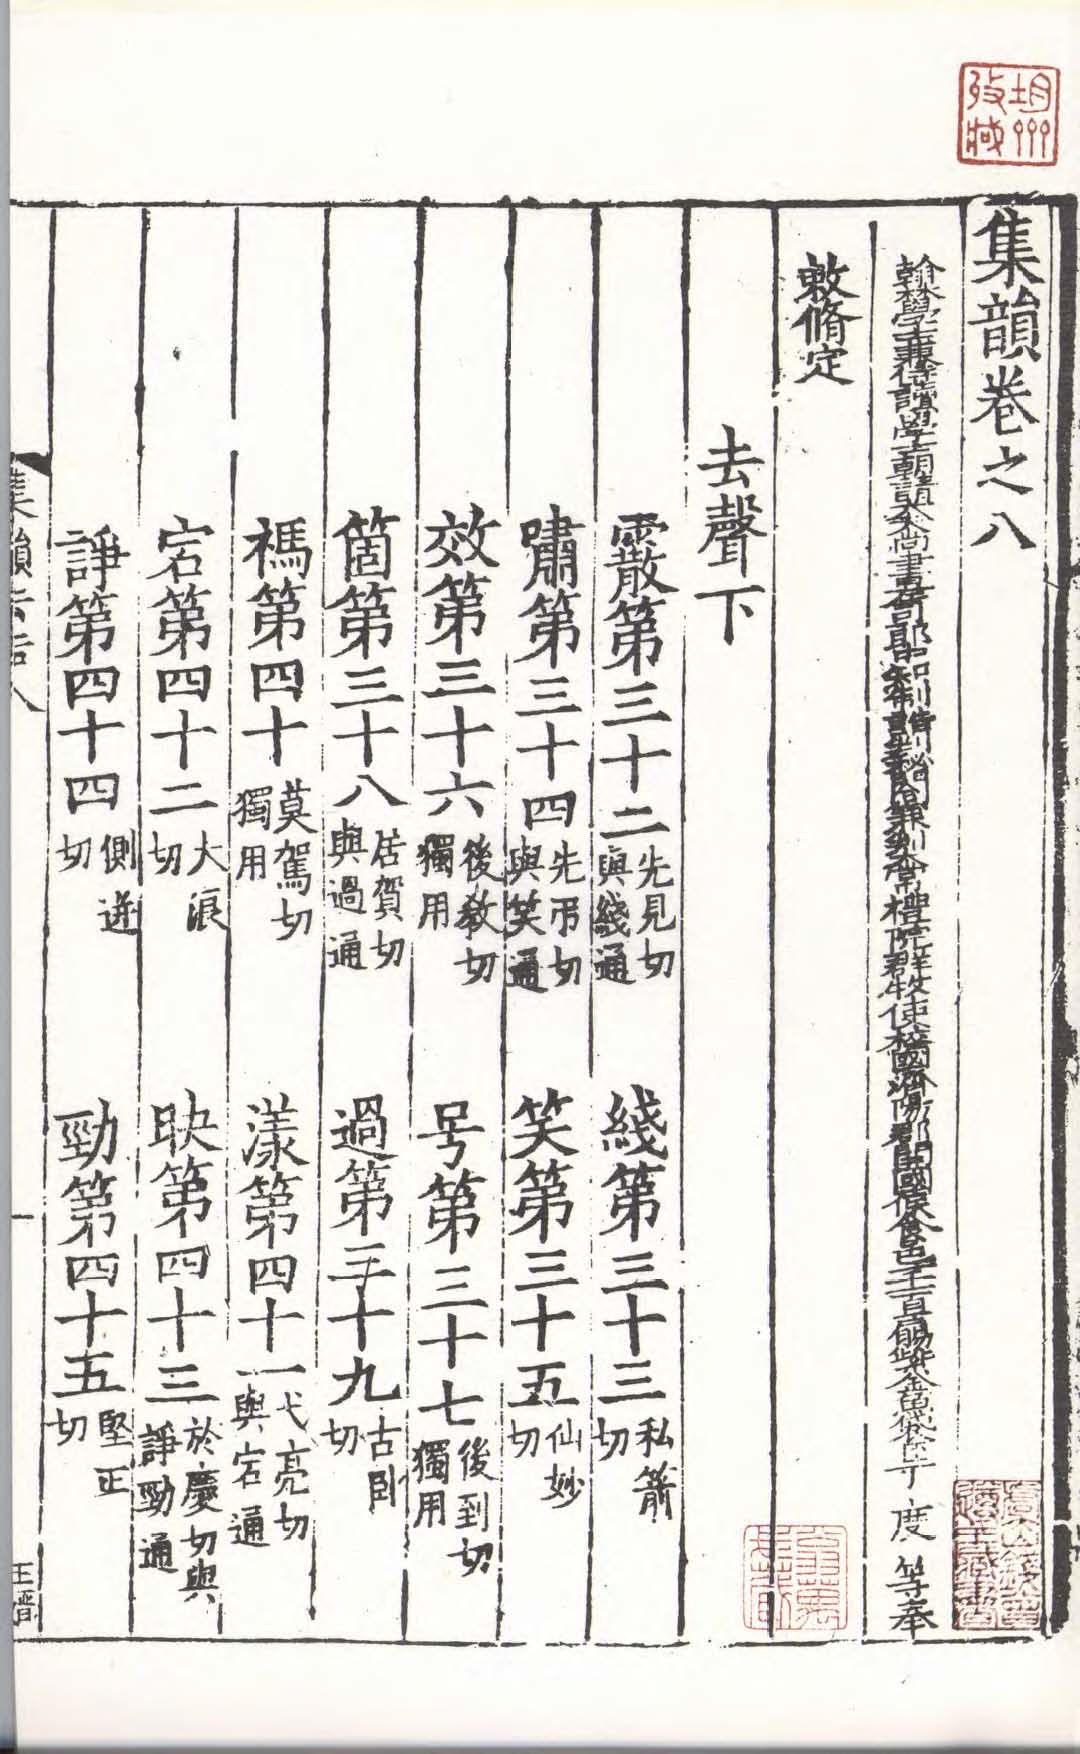 集韻卷之八
翰林學士兼侍讀學士朝請大夫尚書左司郎中知制誥判秘閣兼判太常禮院群牧使柱國濟陽郡開國侯食邑一千二百戶賜紫金魚袋臣丁度等奉
敕脩定
去聲下
霰第三十二先見切與綫通
綫第三十三私箭切
嘯第三十四先弔切與笑通
笑第三十五仙妙切
效第三十六後教切獨用
号第三十七後到切獨用
箇第三十八居賀切與過通
過第三十九古臥切
禡第四十莫駕切獨用
漾第四十一弋亮切與宕通
宕第四十二大浪切
映第四十三於慶切與諍勁通
諍第四十四側迸切
勁第四十五堅正切
集韻去声八
一
王𣈆